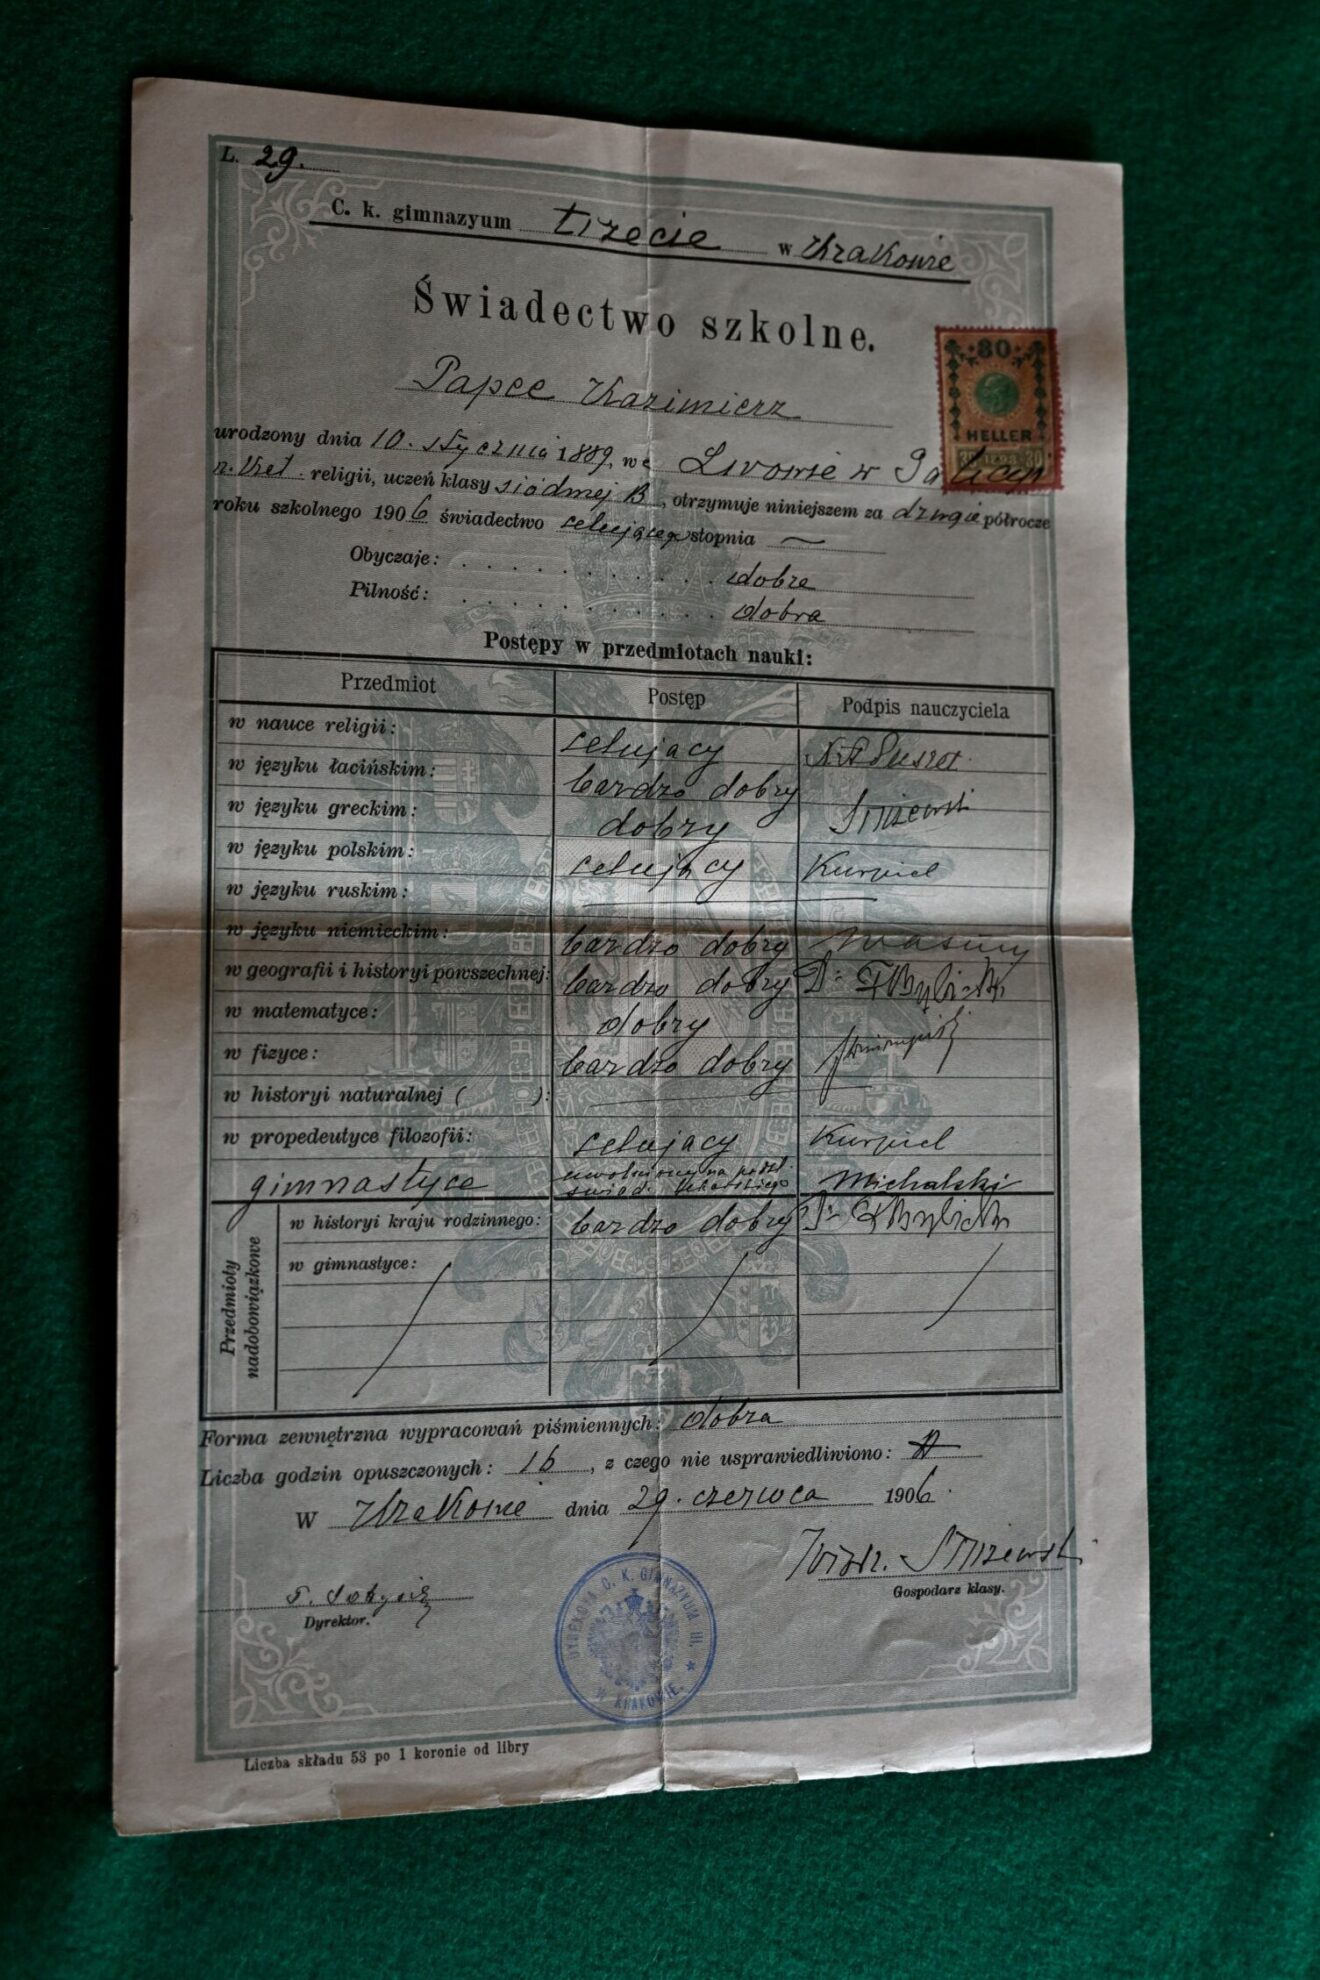 L. 29.
C. k. gimnazyum trzecie w Krakowie
Świadectwo szkolne.
80
HELLER
Papee Kazimierz
urodzony dnia 10. stycznia 1889, we Lwowie w Galicyi
religii, uczeń klasy siódmej B, otrzymuje niniejszem za drugie półrocze
roku szkolnego 1906 świadectwo celującego stopnia —
Obyczaje: dobre
Pilność: dobra
Postępy w przedmiotach nauki:
Przedmiot Postęp Podpis nauczyciela
w nauce religii: celujący
w języku łacińskim: bardzo dobry
w języku greckim: dobry
w języku polskim: celujący Kurpiel
w języku ruskim: —
w języku niemieckim: bardzo dobry
w geografii i historyi powszechnej: bardzo dobry Dr
w matematyce: dobry
w fizyce: bardzo dobry
w historyi naturalnej ( ): —
w propedeutyce filozofii: celujący Kurpiel
gimnastyce uwolniony na podst. świad. lekarskiego Michalski
Przedmioty nadobowiązkowe
w historyi kraju rodzinnego: bardzo dobry Dr
w gimnastyce:
Forma zewnętrzna wypracowań piśmiennych: dobra
Liczba godzin opuszczonych: 16, z czego nie usprawiedliwiono:
W Krakowie dnia 29. czerwca 1906.
Gospodarz klasy.
Dyrektor.
DYREKCYA C. K. GIMNAZYUM III. W KRAKOWIE.
Liczba składu 53 po 1 koronie od libry